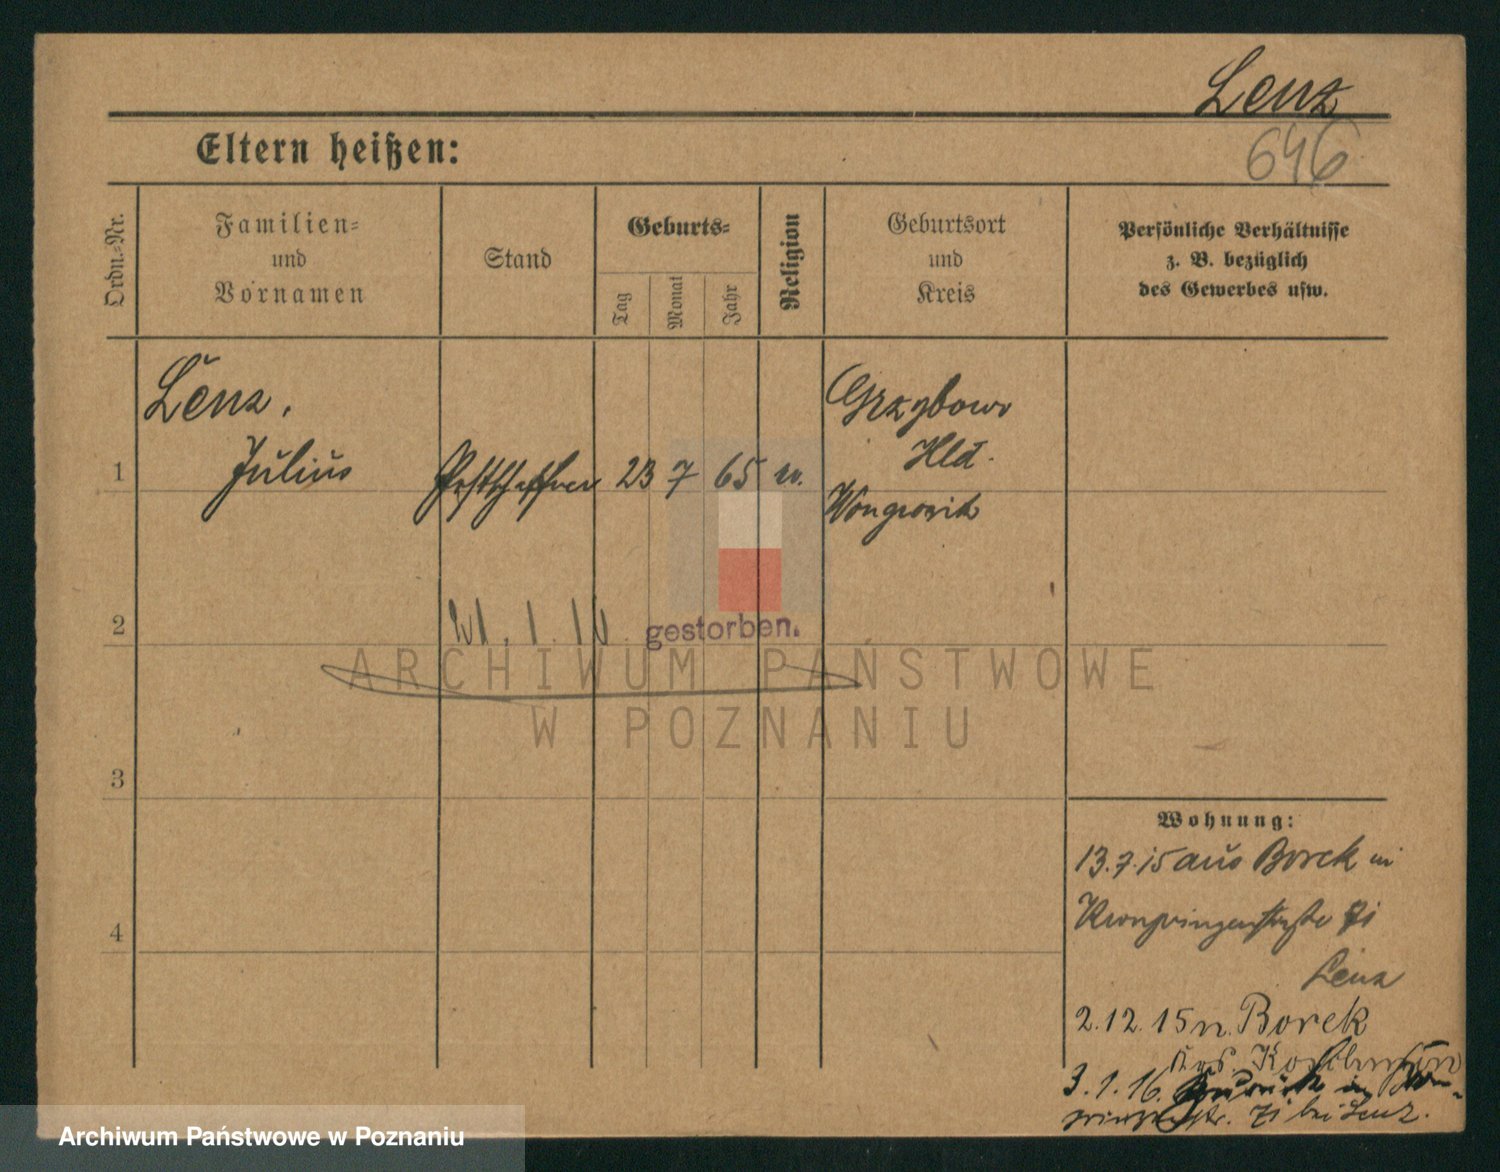 Lenz
646
Eltern heißen:
Ordn.-Nr.
Familien-
und
Vornamen
Stand
Geburts-
Tag
Monat
Jahr
Religion
Geburtsort
und
Kreis
Persönliche Verhältnisse
z. B. bezüglich
des Gewerbes usw.
Lenz,
Julius
1
Postschaffner
23
7
65
Grzybowo
Hld.
Wongrowitz
2
21. 1. 16. gestorben.
3
4
Wohnung:
13.7.15 aus Borek in
Kronprinzenstraße 71
Lenz
2.12.15 n. Borek
Krs. Koschmin
3.1.16. zurück in Kron-
prinzenstr. 71 bei Lenz.
ARCHIWUM PAŃSTWOWE
W POZNANIU
Archiwum Państwowe w Poznaniu